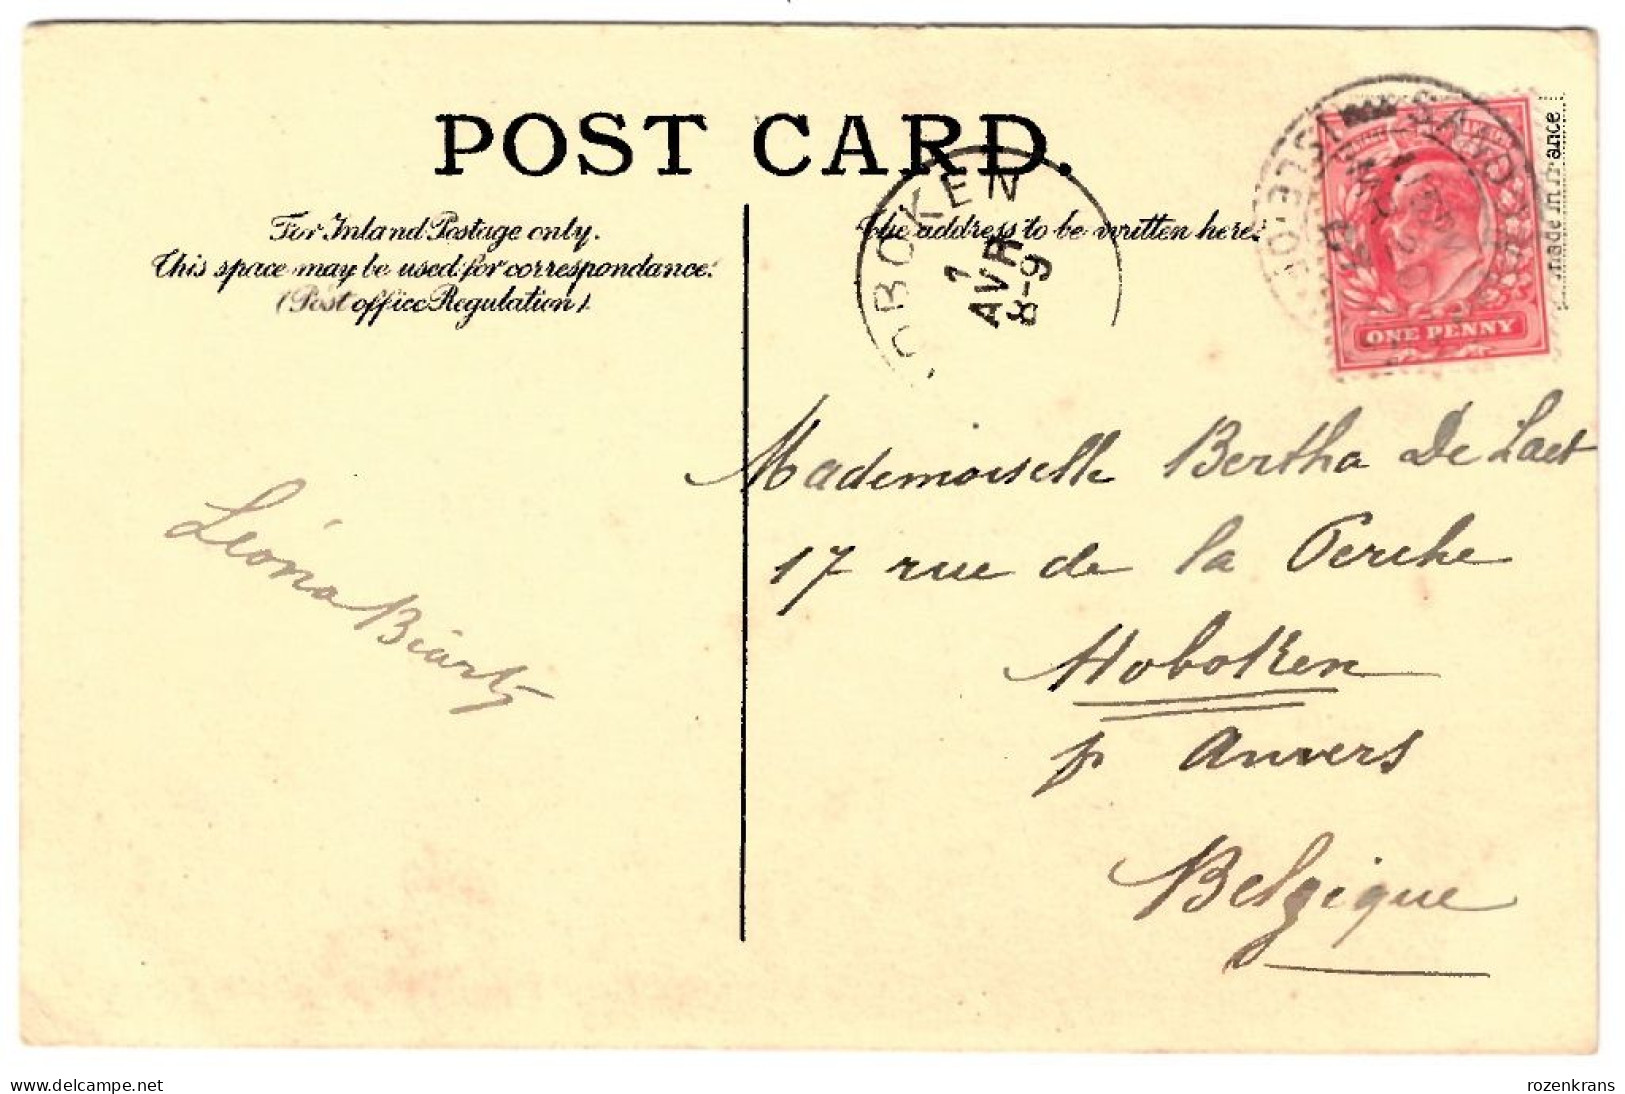 POST CARD.
For Inland Postage only.
This space may be used for correspondance.
(Post office Regulation).
The address to be written here.
HOBOKEN
1
AVR
8-9
ONE PENNY
Made in France
Léona Biartz
Mademoiselle Bertha De Laet
17 rue de la Perche
Hoboken
p Anvers
Belgique
www.delcampe.net
rozenkrans